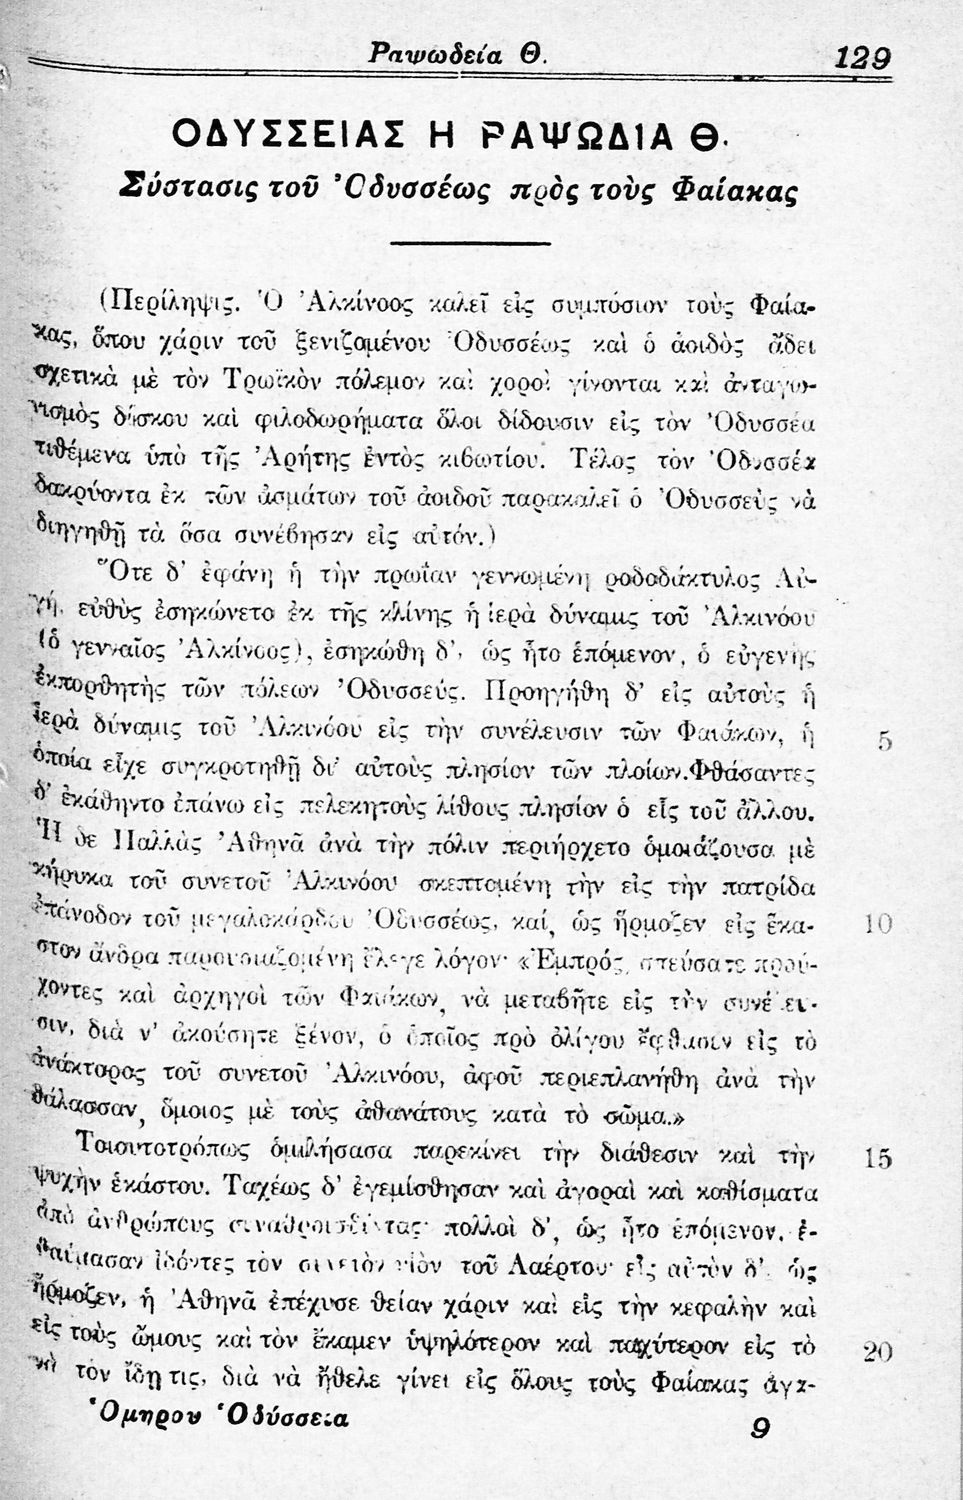 Ραψωδεία Θ. 129
ΟΔΥΣΣΕΙΑΣ Η ΡΑΨΩΔΙΑ Θ.
Σύστασις τοῦ Ὀδυσσέως πρὸς τοὺς Φαίακας
(Περίληψις. Ὁ Ἀλκίνοος καλεῖ εἰς συμπόσιον τοὺς Φαία-
κας, ὅπου χάριν τοῦ ξενιζομένου Ὀδυσσέως καὶ ὁ ἀοιδὸς ᾄδει
σχετικὰ μὲ τὸν Τρωϊκὸν πόλεμον καὶ χοροὶ γίνονται καὶ ἀνταγω-
νισμὸς δίσκου καὶ φιλοδωρήματα ὅλοι δίδουσιν εἰς τὸν Ὀδυσσέα
τιθέμενα ὑπὸ τῆς Ἀρήτης ἐντὸς κιβωτίου. Τέλος τὸν Ὀδυσσέα
δακρύοντα ἐκ τῶν ᾀσμάτων τοῦ ἀοιδοῦ παρακαλεῖ ὁ Ὀδυσσεὺς νὰ
διηγηθῇ τὰ ὅσα συνέβησαν εἰς αὐτόν.)
Ὅτε δ' ἐφάνη ἡ τὴν πρωΐαν γεννωμένη ροδοδάκτυλος Αὐ-
γή, εὐθὺς ἐσηκώνετο ἐκ τῆς κλίνης ἡ ἱερὰ δύναμις τοῦ Ἀλκινόου
(ὁ γενναῖος Ἀλκίνοος), ἐσηκώθη δ', ὡς ἦτο ἑπόμενον, ὁ εὐγενὴς
ἐκπορθητὴς τῶν πόλεων Ὀδυσσεύς. Προηγήθη δ' εἰς αὐτοὺς ἡ
ἱερὰ δύναμις τοῦ Ἀλκινόου εἰς τὴν συνέλευσιν τῶν Φαιάκων, ἡ 5
ὁποία εἶχε συγκροτηθῇ δι' αὐτοὺς πλησίον τῶν πλοίων. Φθάσαντες
δ' ἐκάθηντο ἐπάνω εἰς πελεκητοὺς λίθους πλησίον ὁ εἷς τοῦ ἄλλου.
Ἡ δε Παλλὰς Ἀθηνᾶ ἀνὰ τὴν πόλιν περιήρχετο ὁμοιάζουσα μὲ
κήρυκα τοῦ συνετοῦ Ἀλκινόου σκεπτομένη τὴν εἰς τὴν πατρίδα
ἐπάνοδον τοῦ μεγαλοκάρδου Ὀδυσσέως, καί, ὡς ἥρμοζεν εἰς ἕκα- 10
στον ἄνδρα παρουσιαζομένη ἔλεγε λόγον· «Ἐμπρός, σπεύσατε πρού-
χοντες καὶ ἀρχηγοὶ τῶν Φαιάκων, νὰ μεταβῆτε εἰς τὴν συνέλευ-
σιν, διὰ ν' ἀκούσητε ξένον, ὁ ὁποῖος πρὸ ὀλίγου ἔφθασεν εἰς τὸ
ἀνάκτορος τοῦ συνετοῦ Ἀλκινόου, ἀφοῦ περιεπλανήθη ἀνὰ τὴν
θάλασσαν, ὅμοιος μὲ τοὺς ἀθανάτους κατὰ τὸ σῶμα..»
Τοιουτοτρόπως ὁμιλήσασα παρεκίνει τὴν διάθεσιν καὶ τὴν 15
ψυχὴν ἑκάστου. Ταχέως δ' ἐγεμίσθησαν καὶ ἀγοραὶ καὶ καθίσματα
ἀπὸ ἀνθρώπους συναθροισθέντας· πολλοὶ δ', ὡς ἦτο ἑπόμενον, ἐ-
θαύμασαν ἰδόντες τὸν συνετὸν υἱὸν τοῦ Λαέρτου· εἰς αὐτὸν δ', ὡς
ἥρμοζεν, ἡ Ἀθηνᾶ ἐπέχυσε θείαν χάριν καὶ εἰς τὴν κεφαλὴν καὶ
εἰς τοὺς ὤμους καὶ τὸν ἔκαμεν ὑψηλότερον καὶ παχύτερον εἰς τὸ 20
νὰ τὸν ἴδῃ τις, διὰ νὰ ἤθελε γίνει εἰς ὅλους τοὺς Φαίακας ἀγα-
Ὁμηρου Ὀδύσσεια 9